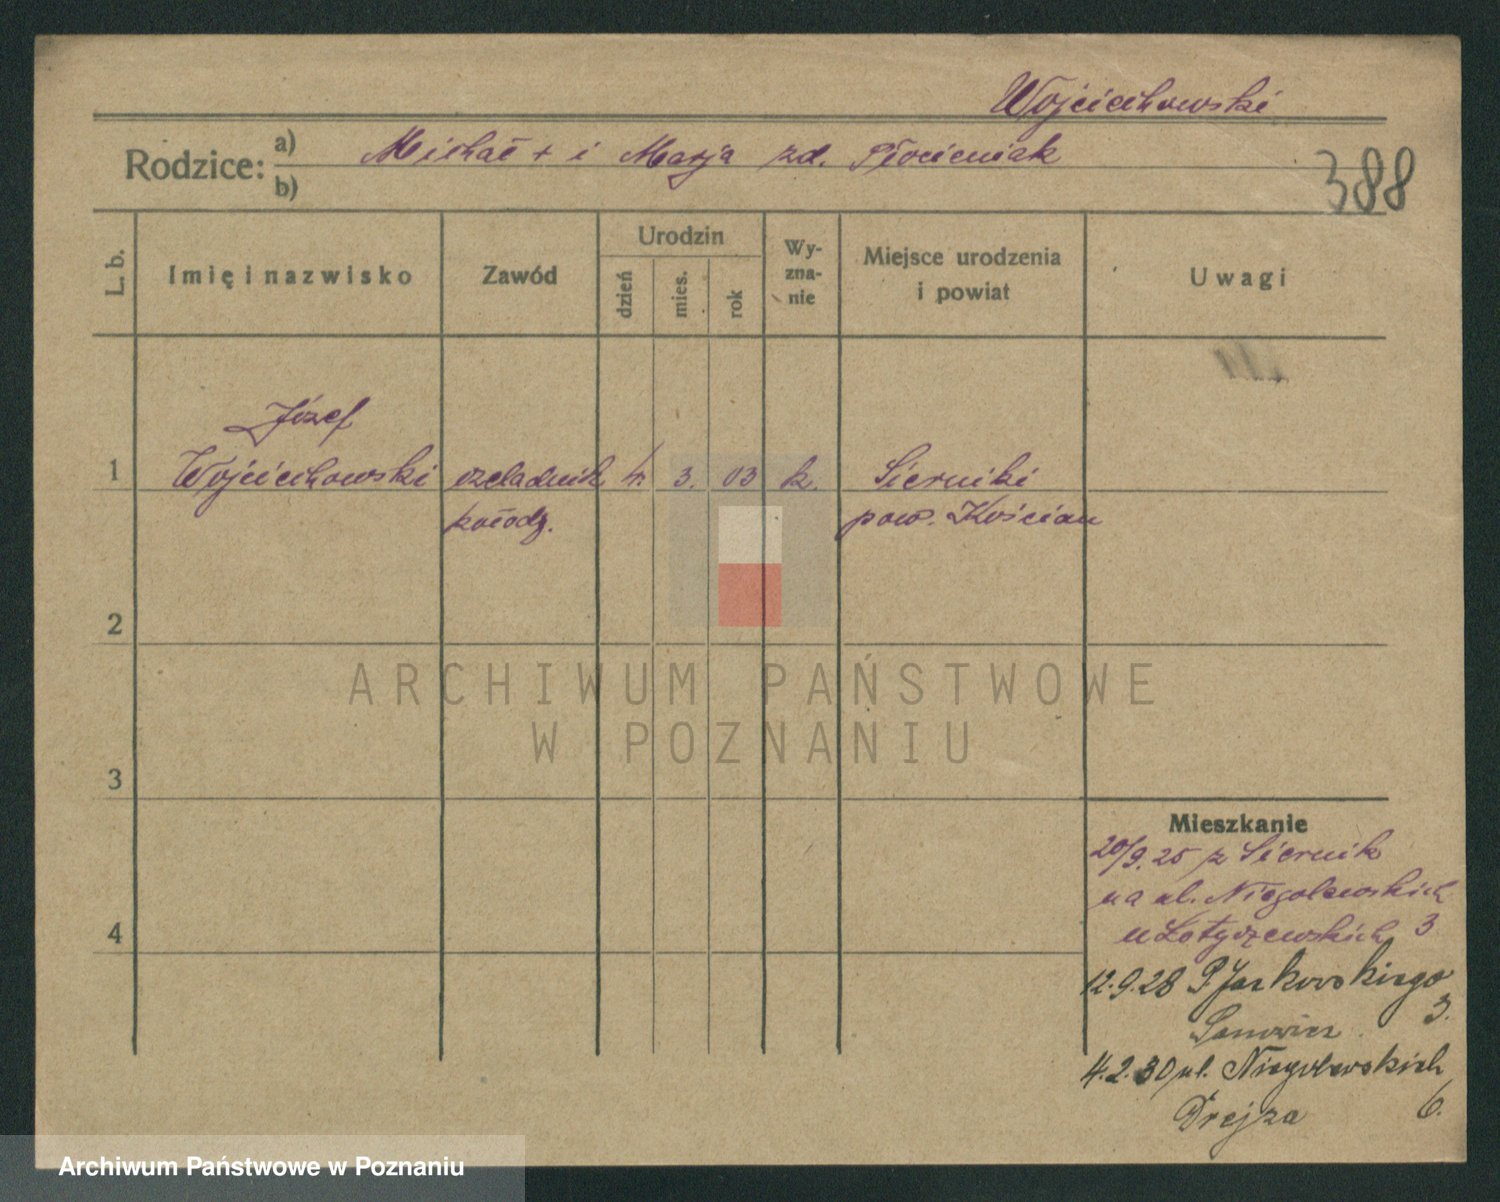 Wojciechowski
Rodzice: a) Michał + i Marja zd. Płócieniak
b)
388
L. b.
Imię i nazwisko
Zawód
Urodzin
dzień
mies.
rok
Wy-
zna-
nie
Miejsce urodzenia
i powiat
Uwagi
Józef
1 Wojciechowski czeladnik 4. 3. 03 k. Sierniki
kołodz. pow. Kościan
2
3
4
Mieszkanie
20/9.25 z Siernik
na ul. Niegolewskich
u Łotyszewskich 3
12.9.28 P. Jackowskiego
3.
4.2.30 ul. Niegolewskich
Drejza 6.
ARCHIWUM PAŃSTWOWE
W POZNANIU
Archiwum Państwowe w Poznaniu